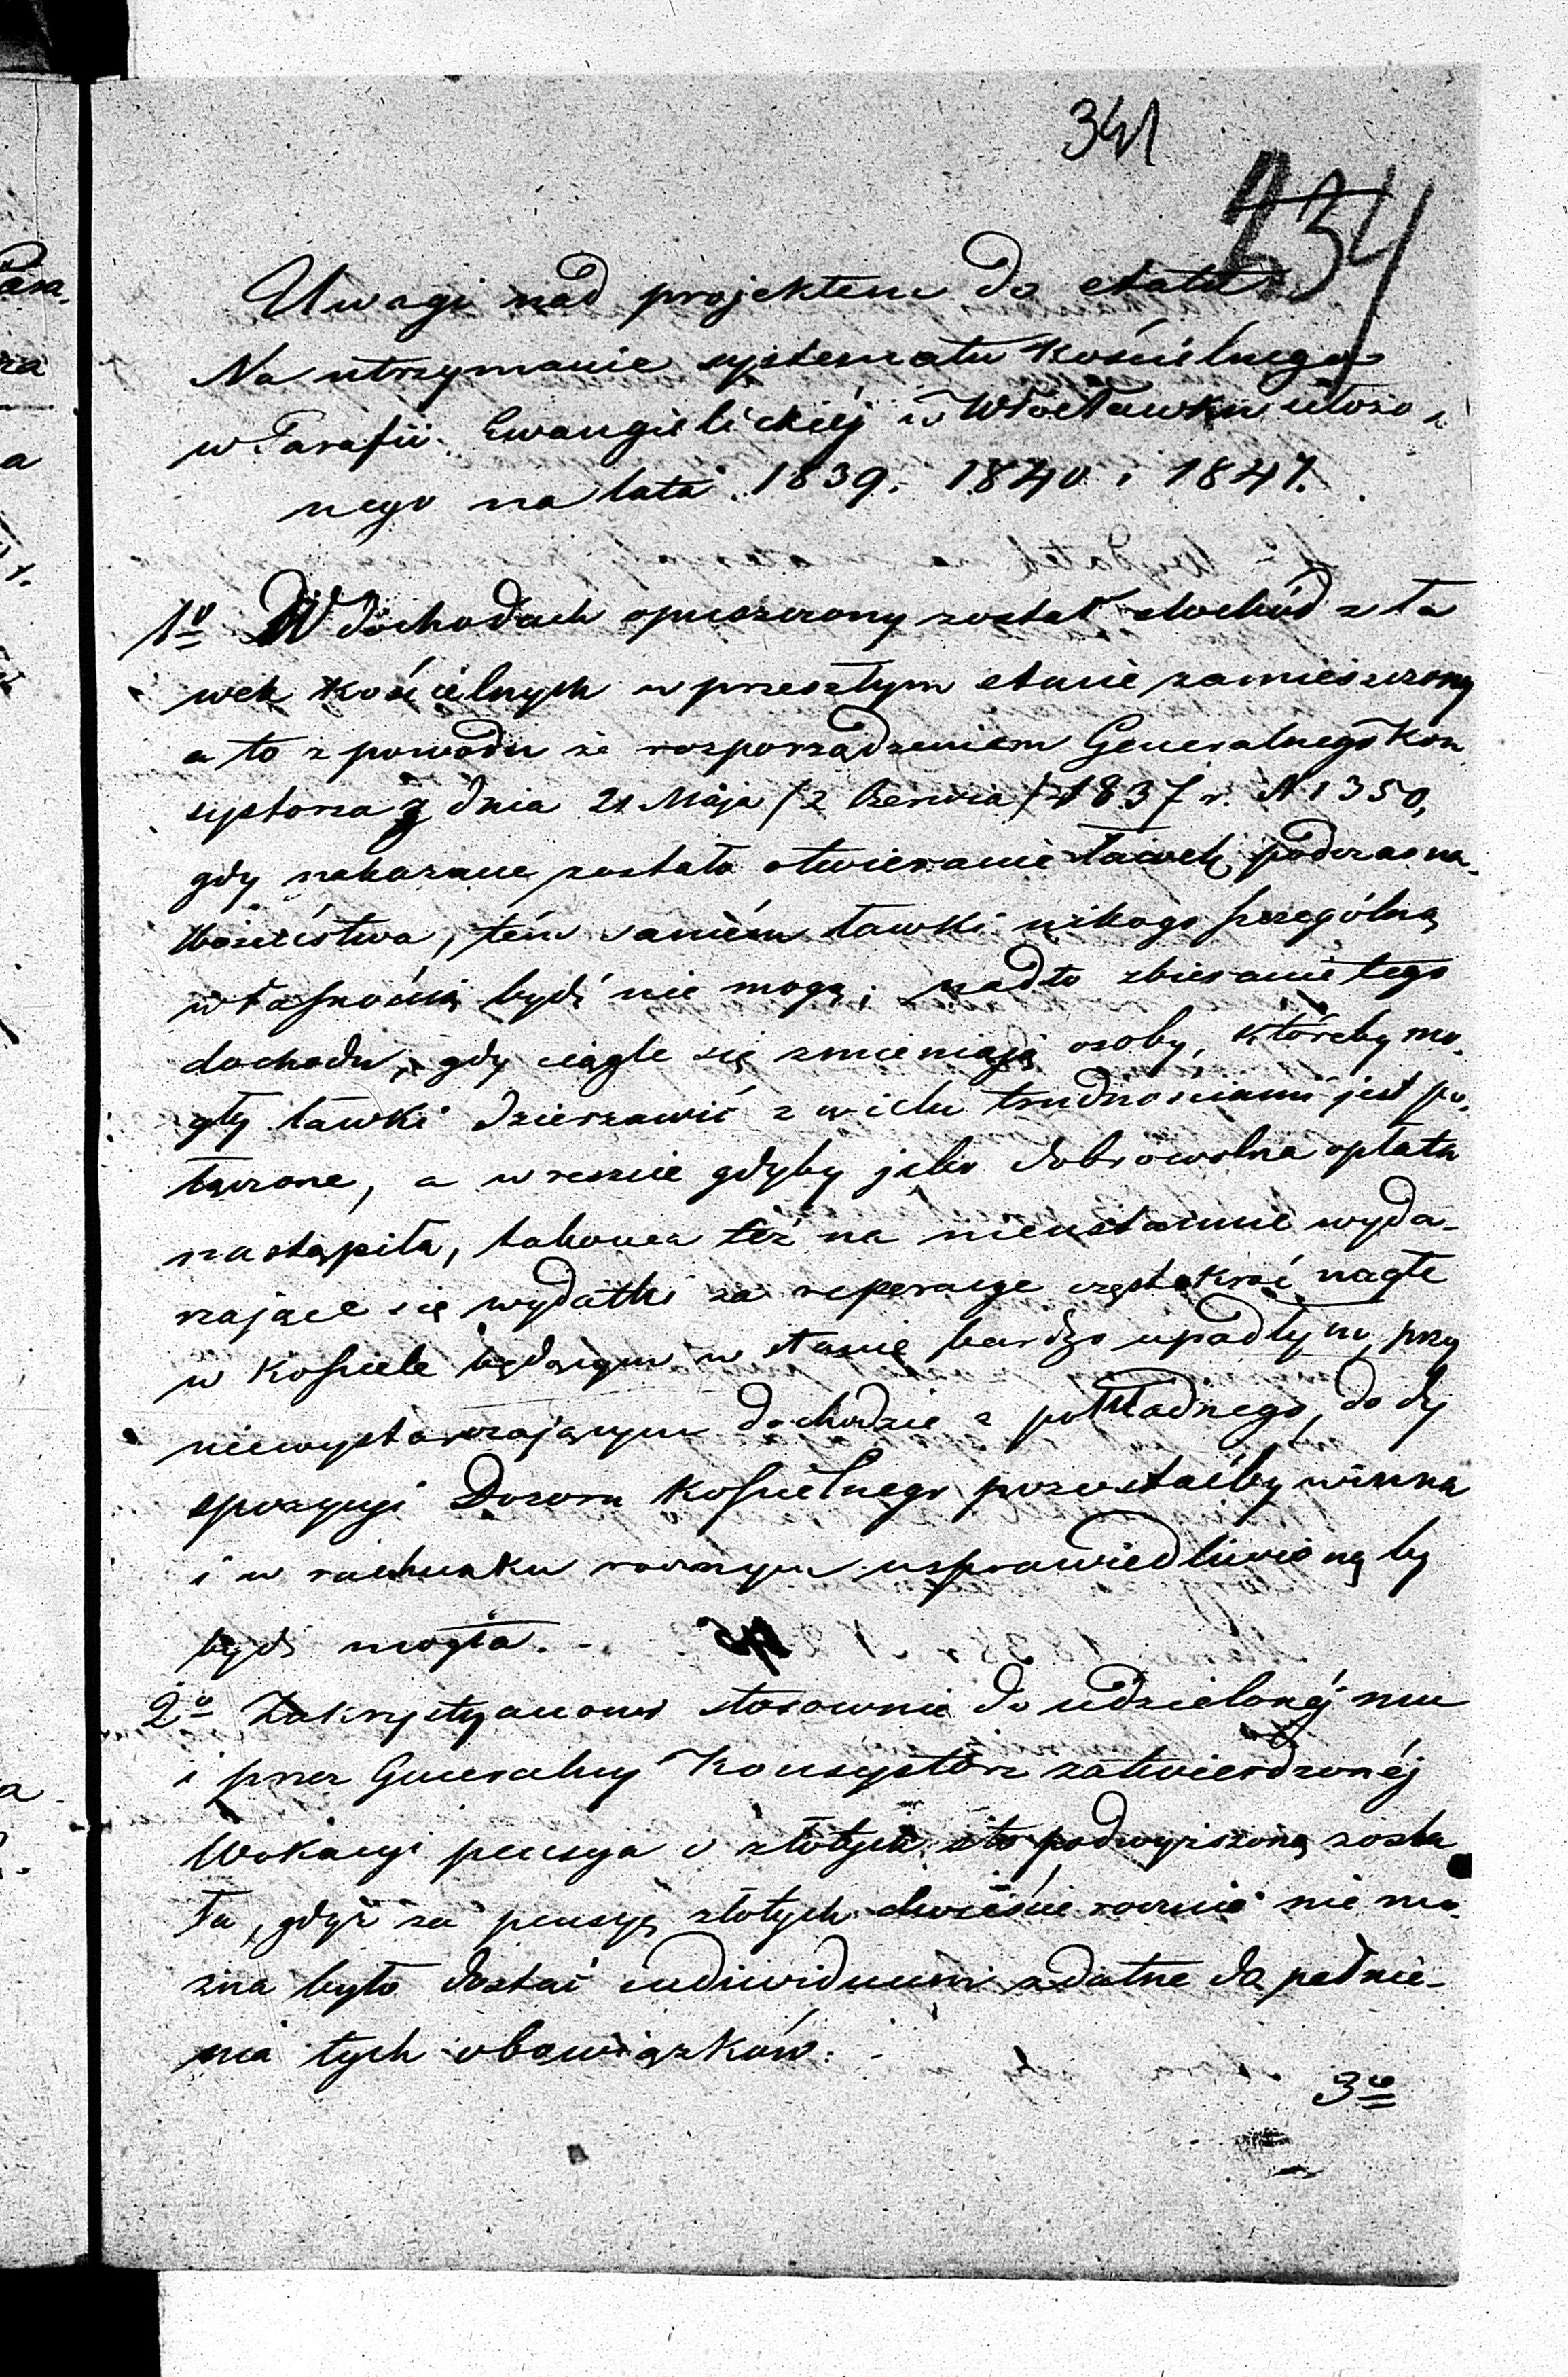 341
234
Uwagi nad projektem do etatu
Na utrzymanie systematu kościelnego
w Parafii Ewangielickiéj w Włocławku ułożo
nego na lata 1839. 1840 i 1841.
1º W dochodach opuszczony został dochód z ła
wek kościelnych w przeszłym etacie zamieszczony
a to z powodu że rozporządzeniem Generalnego Kon
systorza z dnia 21 Maja /2 Czerwca/ 1837 r. N 1350,
gdy nakazane zostało otwieranie ławek podczas na
bożeństwa, tém samém ławki nikogo szczególną
własnością bydź nie mogą; nadto zbieranie tego
dochodu, gdy ciągle się zmieniają osoby, któreby mo
gły ławki dzierżawić z wielu trudnościami jest po
łączone, a wreszcie gdyby jako dobrowolna opłata
nastąpiła, takowa też na nieustannie wyda-
rzające się wydatki za reperacye częstokroć nagłe
w kościele będącym w stanie bardzo upadłym, przy
niewystarczającym dochodzie z pokładnego, do dy
spozycyi Dozoru kościelnego pozostaćby winna
i w rachunku rocznym usprawiedliwioną by
bydź mogła. -
2º Zakrystyanowi stosownie do udzielonéj mu
i przez Generalny Konsystorz zatwierdzonéj
Wokacyi pensya o złotych sto podwyższoną zosta
ła, gdyż za pensyą złotych dwieście rocznie nie mo
żna było dostać individuum zdatne do pełnie-
nia tych obowiązków. -
3º